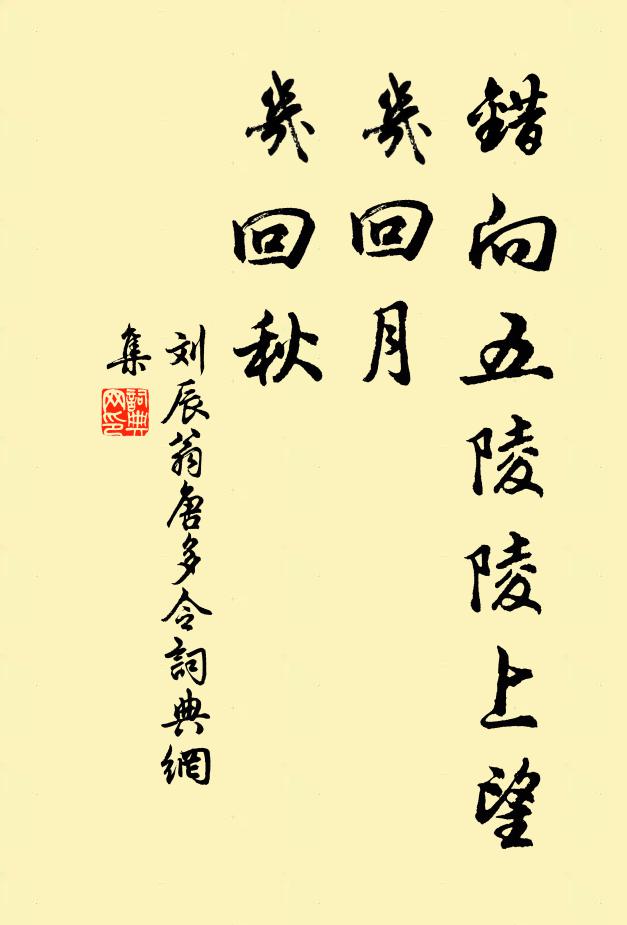 錯向五陵陵上望
幾回月
幾回秋
刘辰翁唐多令詞典網
集
詞典
网印